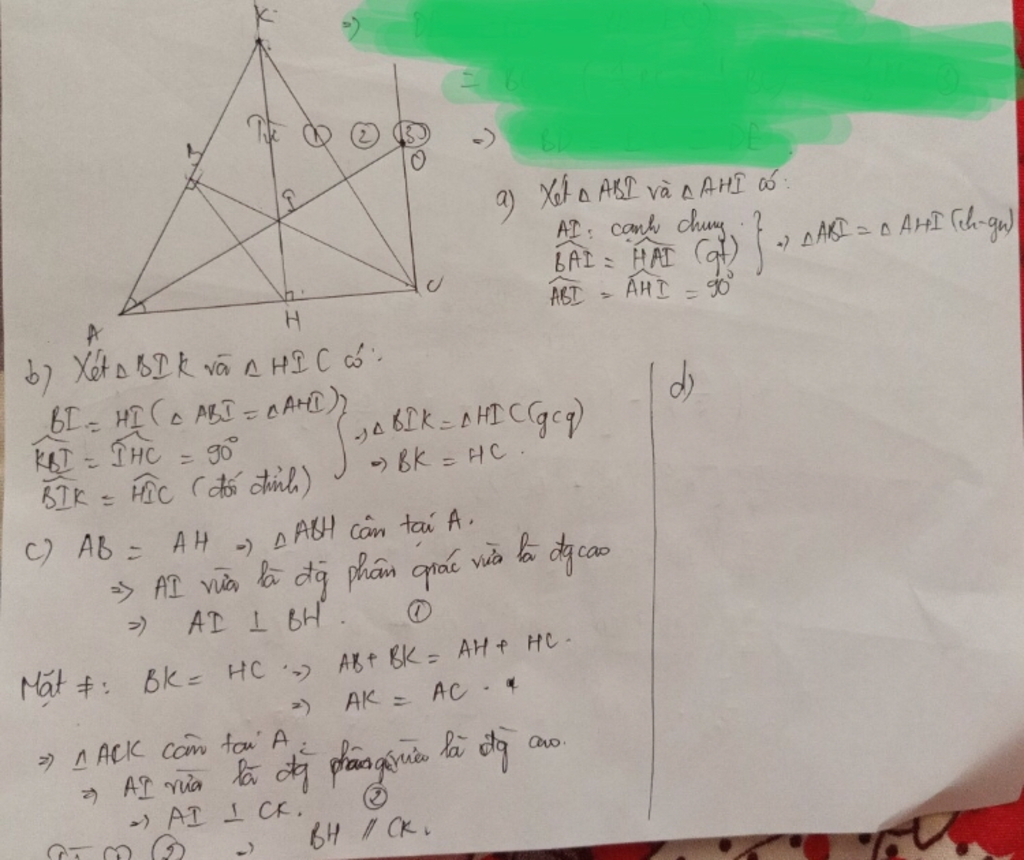 K
B
Từ ① ② ③
O
I
C
A
H
=)
=)
a) Xét △ ABI và △ AHI có:
AI: cạnh chung
BAI = HAI (gt)
ABI = AHI = 90°
=> △ABI = △ AHI (ch-gn)
b) Xét △ BIK và △ HIC có:
BI = HI (△ ABI = △AHI)
KBI = IHC = 90°
BIK = HIC (đối đỉnh)
=> △BIK = △HIC (gcg)
=> BK = HC.
c) AB = AH => △ABH cân tại A.
=> AI vừa là đg phân giác vừa là đg cao
=> AI ⊥ BH. ①
Mặt ≠: BK = HC => AB + BK = AH + HC.
=> AK = AC.
=> △ACK cân tại A.
=> AI vừa là đg phân g vừa là đg cao.
=> AI ⊥ CK. ②
Từ ① ② => BH // CK.
d)